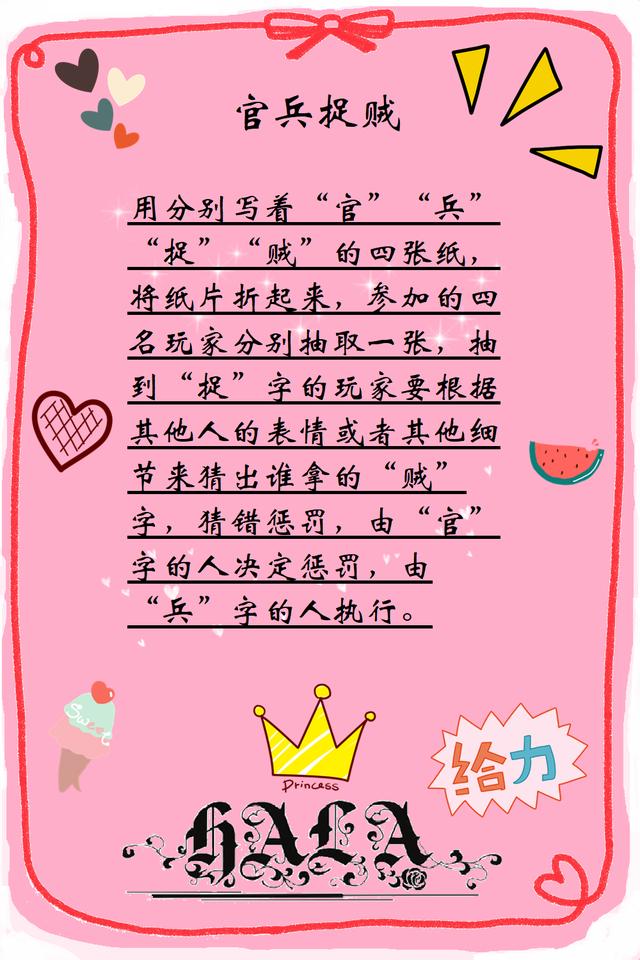 官兵捉贼
用分别写着“官”“兵”
“捉”“贼”的四张纸，
将纸片折起来，参加的四
名玩家分别抽取一张，抽
到“捉”字的玩家要根据
其他人的表情或者其他细
节来猜出谁拿的“贼”
字，猜错惩罚，由“官”
字的人决定惩罚，由
“兵”字的人执行。
Sweet
Princess
给力
HALA